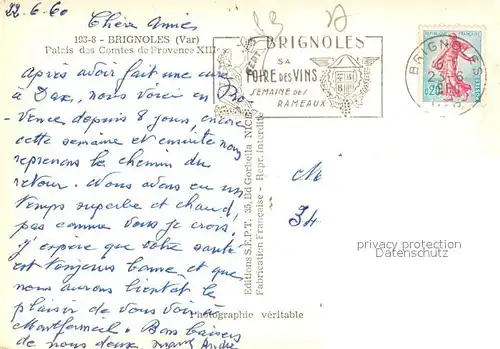 22-6-60
Chère Amies
193-8 - BRIGNOLES (Var)
Palais des Comtes de Provence XIII
Après avoir fait une cure
à Dax, nous voici en Pro-
vence depuis 8 jours, encore
cette semaine et ensuite nous
reprenons le chemin du
retour. Nous avons eu un
temps superbe et chaud,
pas comme vous je crois.
j'espère que votre santé
est toujours bonne et que
nous aurons bientôt le
plaisir de vous voir à
Montfermeil. Bons baisers
de nous deux. André
BRIGNOLES
SA
FOIRE DES VINS
SEMAINE DES
RAMEAUX
BRIGNOLES
23-6
VAR
0,20
Editions S.E.P.T. 35, Bd Gorbella NICE
Fabrication Française - Repr. Interdite
M
34
privacy protection
Datenschutz
Photographie véritable